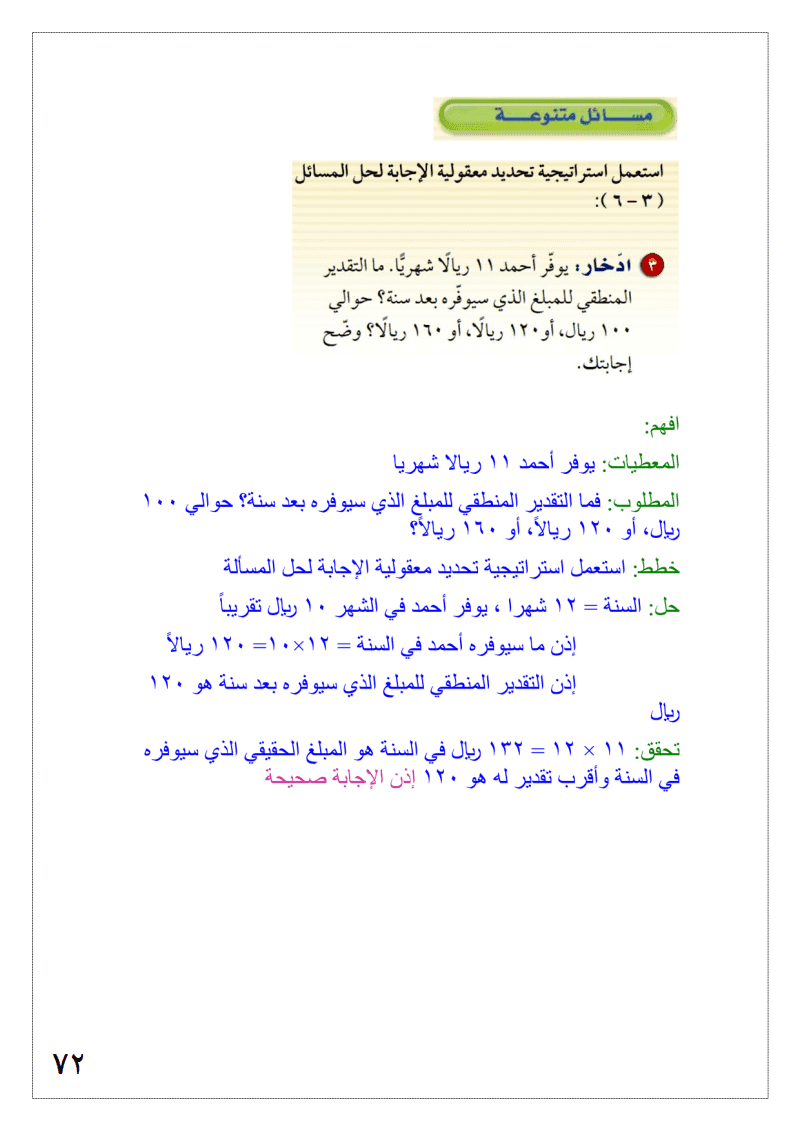 مسائل متنوعة
استعمل استراتيجية تحديد معقولية الإجابة لحل المسائل
( ٣ – ٦ ):
٣ ادّخار: يوفّر أحمد ١١ ريالًا شهريًّا. ما التقدير
المنطقي للمبلغ الذي سيوفّره بعد سنة؟ حوالي
١٠٠ ريال، أو ١٢٠ ريالًا، أو ١٦٠ ريالًا؟ وضّح
إجابتك.
افهم:
المعطيات: يوفر أحمد ١١ ريالا شهريا
المطلوب: فما التقدير المنطقي للمبلغ الذي سيوفره بعد سنة؟ حوالي ١٠٠
ريال، أو ١٢٠ ريالاً، أو ١٦٠ ريالاً؟
خطط: استعمل استراتيجية تحديد معقولية الإجابة لحل المسألة
حل: السنة = ١٢ شهرا ، يوفر أحمد في الشهر ١٠ ريال تقريباً
إذن ما سيوفره أحمد في السنة = ١٢×١٠= ١٢٠ ريالاً
إذن التقدير المنطقي للمبلغ الذي سيوفره بعد سنة هو ١٢٠
ريال
تحقق: ١١ × ١٢ = ١٣٢ ريال في السنة هو المبلغ الحقيقي الذي سيوفره
في السنة وأقرب تقدير له هو ١٢٠ إذن الإجابة صحيحة
٧٢